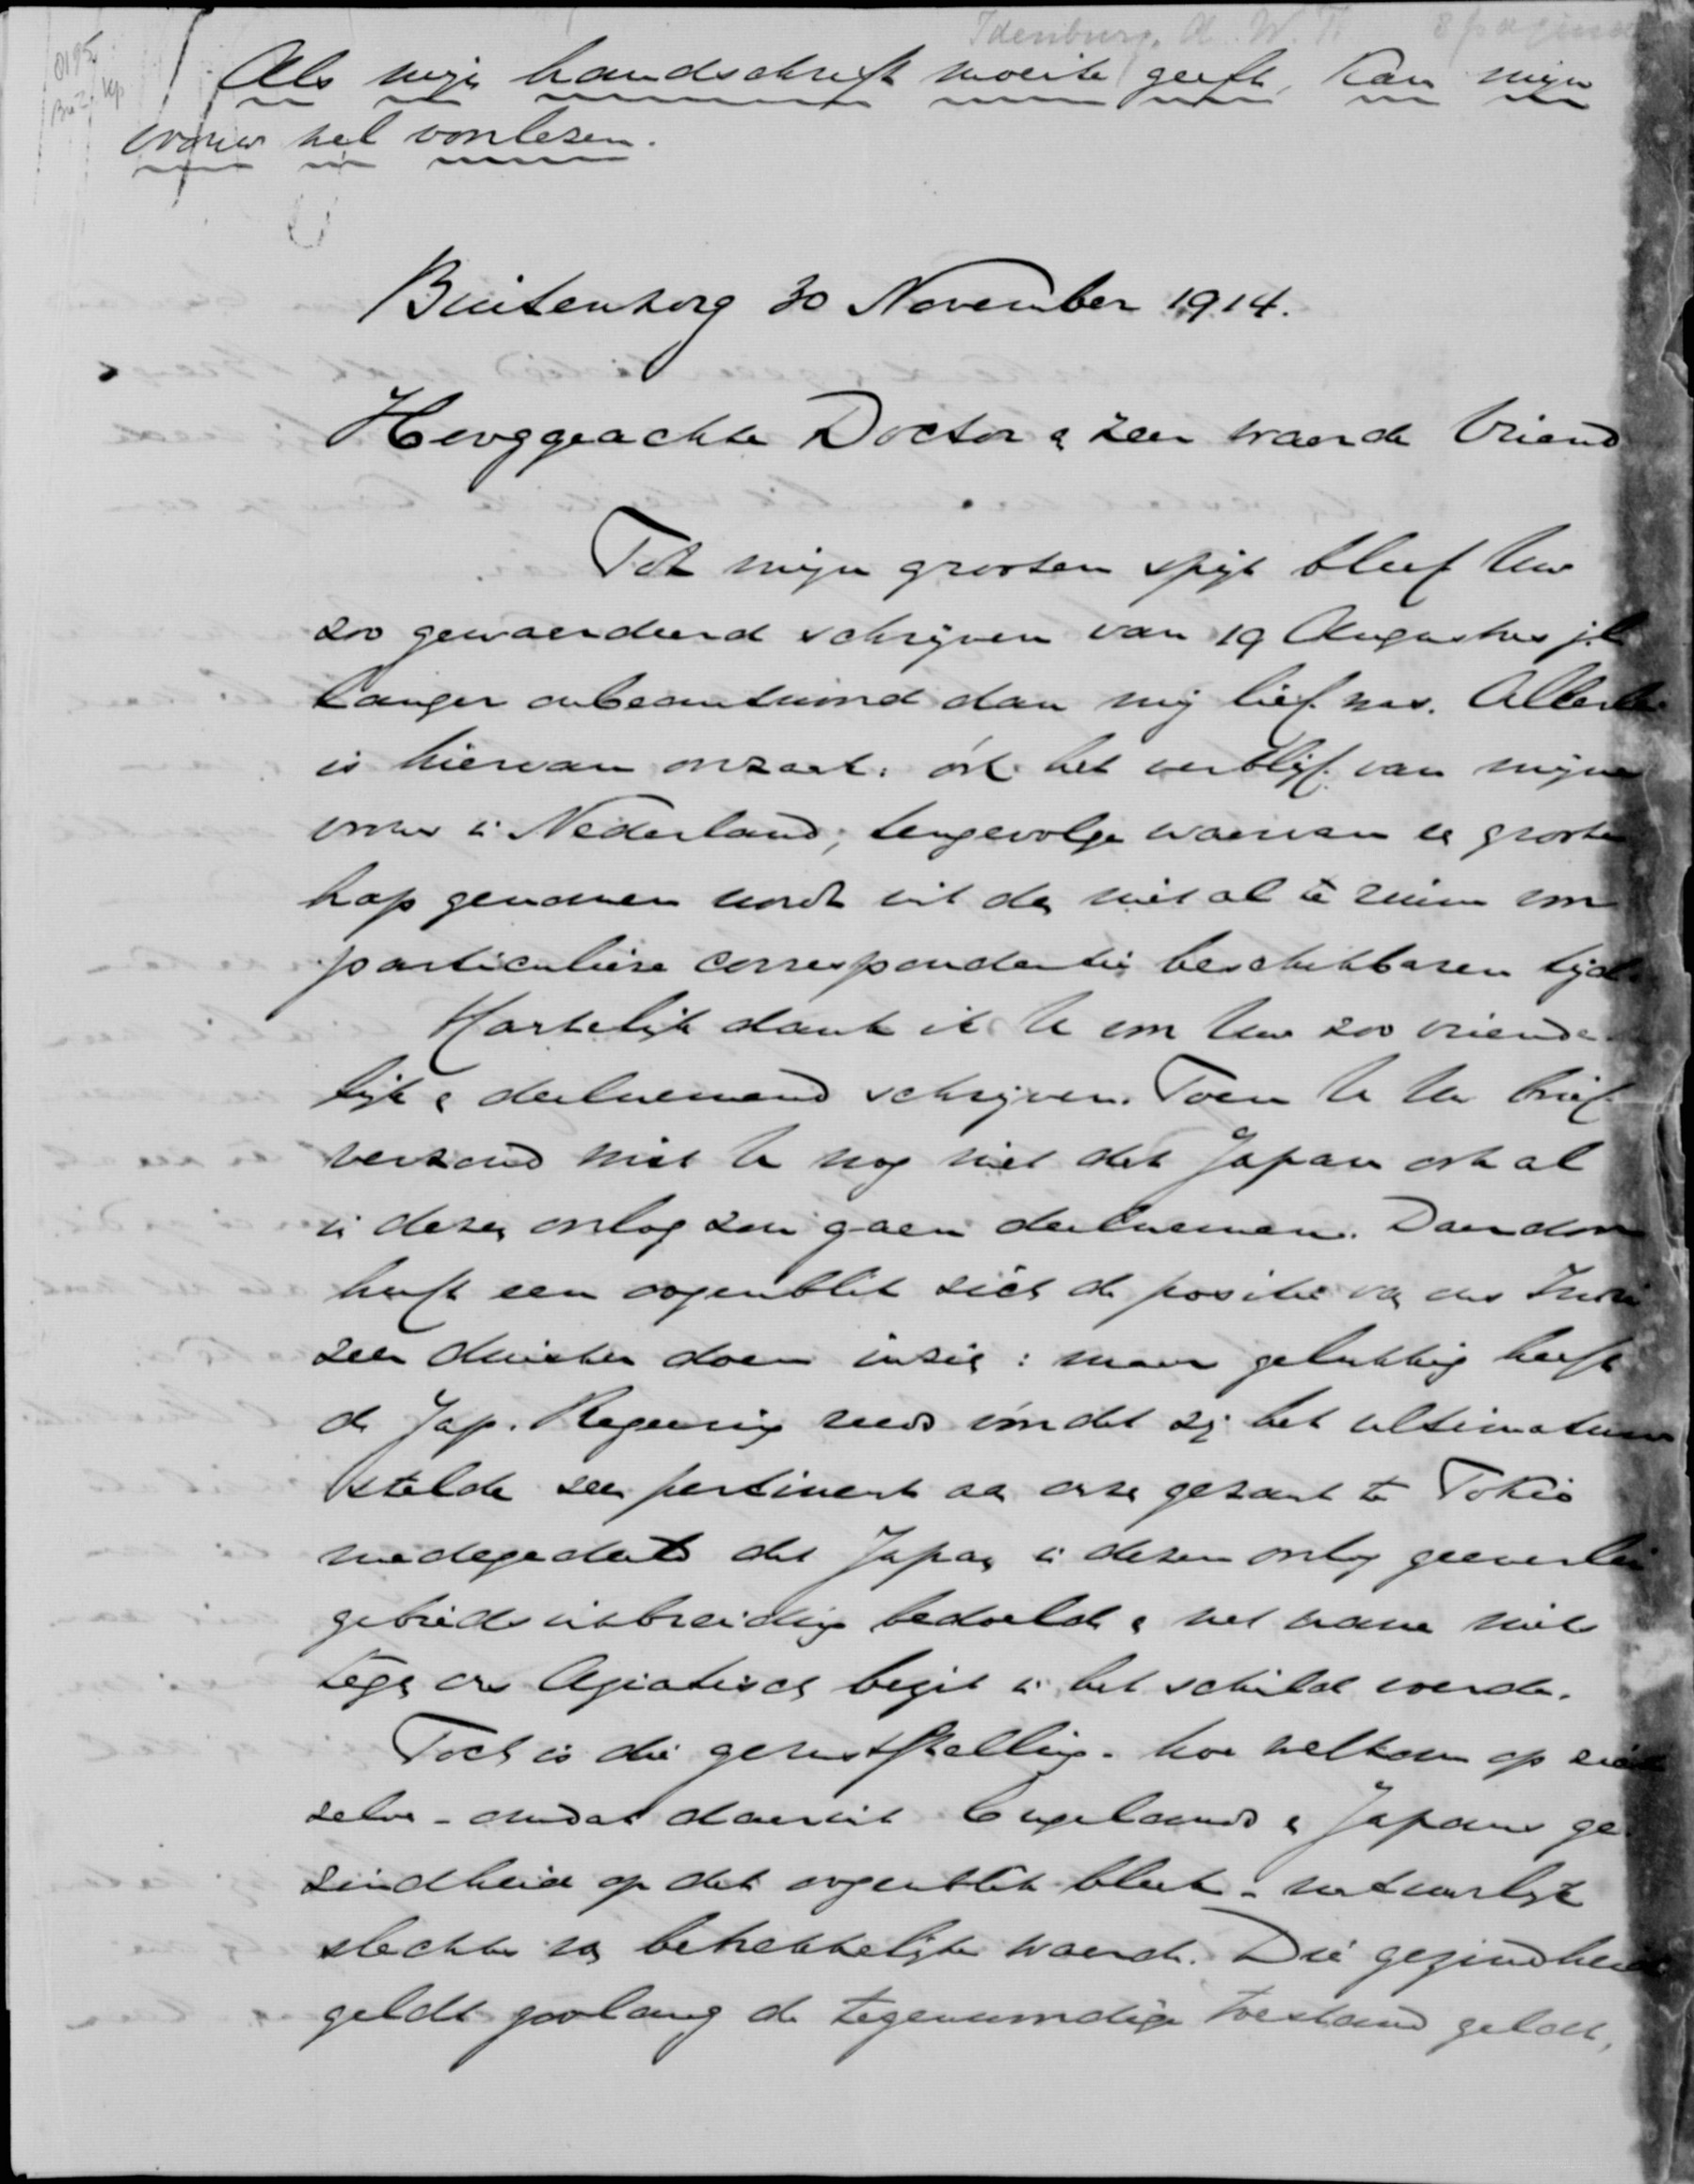 Idenburg, A. W. F. 8 pagina
0195
Als mijn handschrift moeite geeft, kan mijn
vrouw het voorlezen.
Buitenzorg 30 November 1914.
Hooggeachte Doctor & zeer waarde Vriend
Tot mijn grooten spijt bleef Uw
zoo gewaardeerd schrijven van 19 Augustus jl
langer onbeantwoord dan mij lief was. Allerlei
is hiervan oorzaak: óók het verblijf van mijne
vrouw in Nederland; tengevolge waarvan een groote
hap genomen wordt uit den niet al te ruim voor
particuliere correspondentie beschikbaren tijd.
Hartelijk dank ik U om Uw zoo vriende-
lijk & deelnemend schrijven. Toen U Uw brief
verzond wist U nog niet dat Japan ook al
in dezen oorlog zou gaan deelnemen. Daardoor
heeft een oogenblik zich de positie van ons Indië
zeer duister doen inzien: maar gelukkig heeft
de Jap. Regeering reeds vóórdat zij het ultimatum
stelde zeer pertinent aan onzen gezant te Tokio
medegedeeld dat Japan in dezen oorlog geenerlei
gebiedsuitbreiding bedoelde & met name niets
tegen ons Aziatisch bezit in het schild voerde.
Toch is die geruststelling - hoe welkom op zich
zelve - omdat daaruit Engelands & Japans ge-
zindheid op dat oogenblik bleek - natuurlijk
slechts van betrekkelijke waarde. Die gezindheid
geldt zoolang de tegenwoordige toestand geldt,